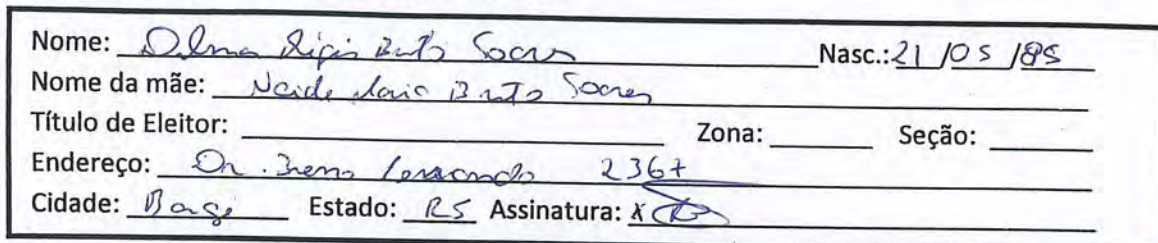 Nome: Regis Brito Soares Nasc.: 21/05/85
Nome da mãe: Neide Maria Brito Soares
Título de Eleitor: Zona: Seção:
Endereço: Dr. 2367
Cidade: Bagé Estado: RS Assinatura: X